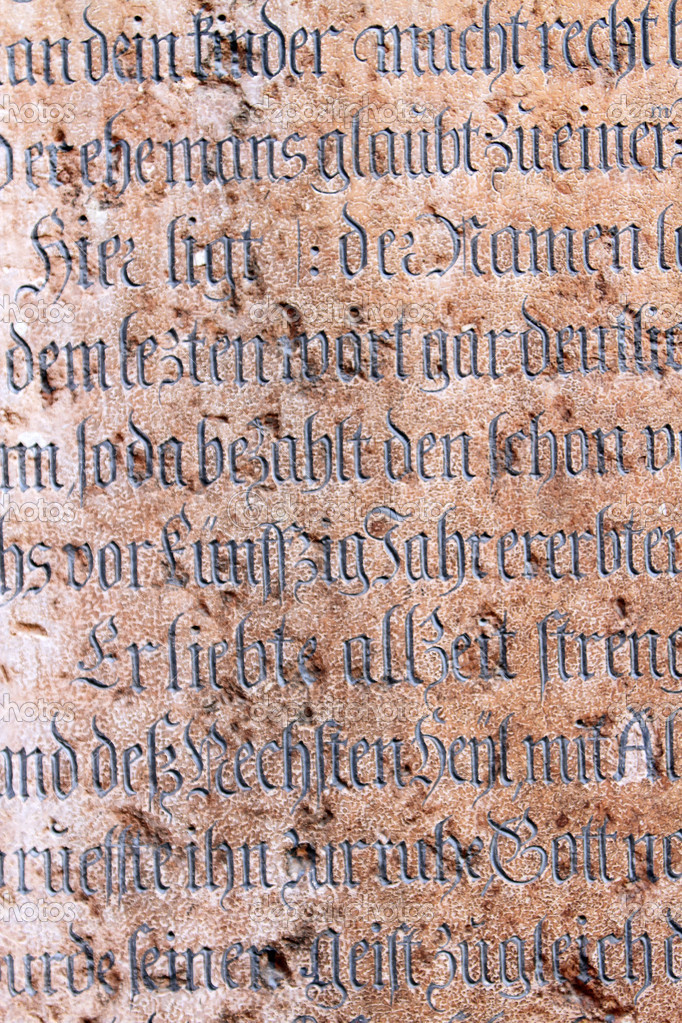 an dein kinder macht recht
der ehemans glaubt zu einer
Hier ligt |: der Namen
dem lezten wort gar deutlic
m so da bezahlt den schon
hs vor fünffzig Jahr ererbten
Er liebte allZeit streng
und deß Nechsten Heÿl, mit Al
rueffte ihn zur ruhe, Gott
urde seinen Geist zugleich d